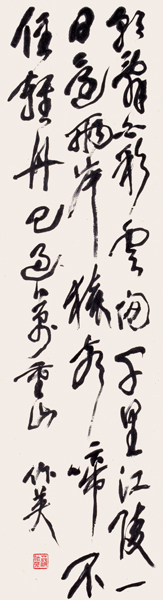 朝辭白帝彩雲間千里江陵一
日還兩岸猿聲啼不
住輕舟已過萬重山